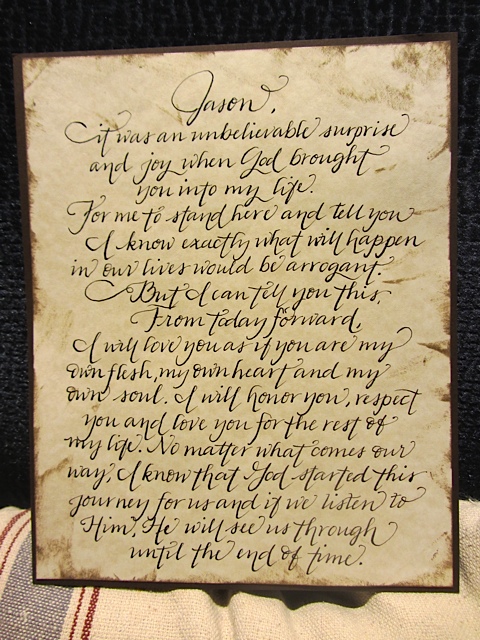 Jason,
it was an unbelievable surprise
and joy when God brought
you into my life.
For me to stand here and tell you
I know exactly what will happen
in our lives would be arrogant.
But I can tell you this.
From today forward,
I will love you as if you are my
own flesh, my own heart and my
own soul. I will honor you, respect
you and love you for the rest of
my life. No matter what comes our
way, I know that God started this
journey for us and if we listen to
Him, He will see us through
until the end of time.